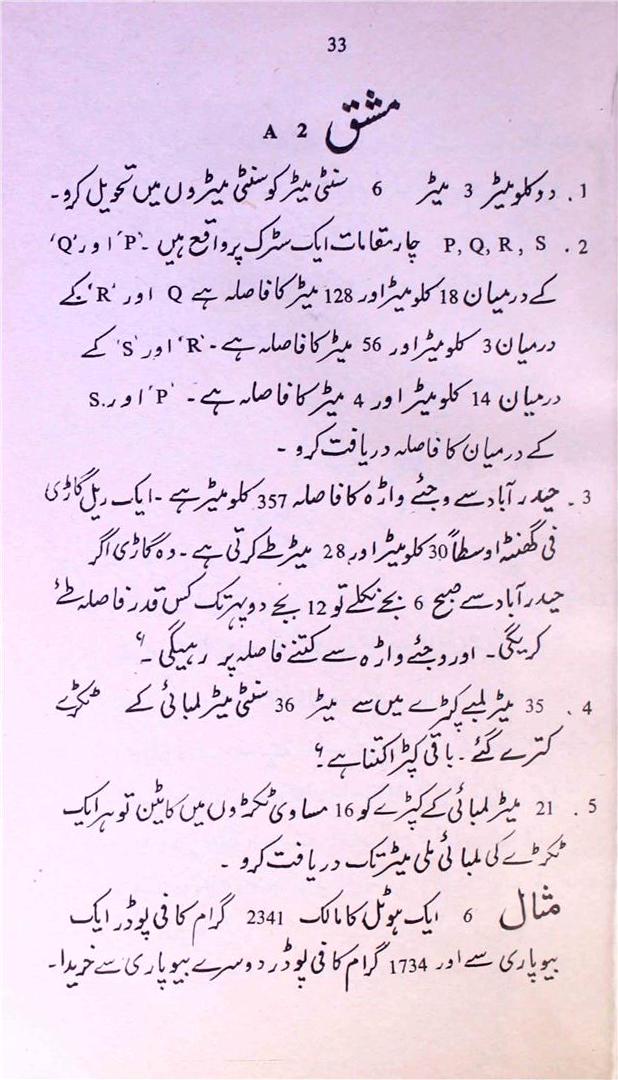 33
مشق 2 A
1. دو کلو میٹر 3 میٹر 6 سنٹی میٹر کو سنٹی میٹروں میں تحویل کرو۔
2. P, Q, R, S چار مقامات ایک سڑک پر واقع ہیں۔ 'P' اور 'Q'
کے درمیان 18 کلو میٹر اور 128 میٹر کا فاصلہ ہے Q اور 'R' کے
درمیان 3 کلو میٹر اور 56 میٹر کا فاصلہ ہے۔ 'R' اور 'S' کے
درمیان 14 کلو میٹر اور 4 میٹر کا فاصلہ ہے۔ 'P' اور S.
کے درمیان کا فاصلہ دریافت کرو۔
3۔ حیدرآباد سے وجئے واڑہ کا فاصلہ 357 کلو میٹر ہے۔ ایک ریل گاڑی
فی گھنٹہ اوسطاً 30 کلو میٹر اور 28 میٹر طے کرتی ہے۔ وہ گاڑی اگر
حیدرآباد سے صبح 6 بجے نکلے تو 12 بجے دوپہر تک کس قدر فاصلہ طئے
کریگی۔ اور وجئے واڑہ سے کتنے فاصلہ پر رہیگی۔؟
4. 35 میٹر لمبے کپڑے میں سے میٹر 36 سنٹی میٹر لمبائی کے ٹکڑے
کترے گئے۔ باقی کپڑا کتنا ہے؟
5. 21 میٹر لمبائی کے کپڑے کو 16 مساوی ٹکڑوں میں کاٹیں تو ہر ایک
ٹکڑے کی لمبائی ملی میٹر تک دریافت کرو۔
مثال 6 ایک ہوٹل کا مالک 2341 گرام کافی پوڈر ایک
بیوپاری سے اور 1734 گرام کافی پوڈر دوسرے بیوپاری سے خریدا۔